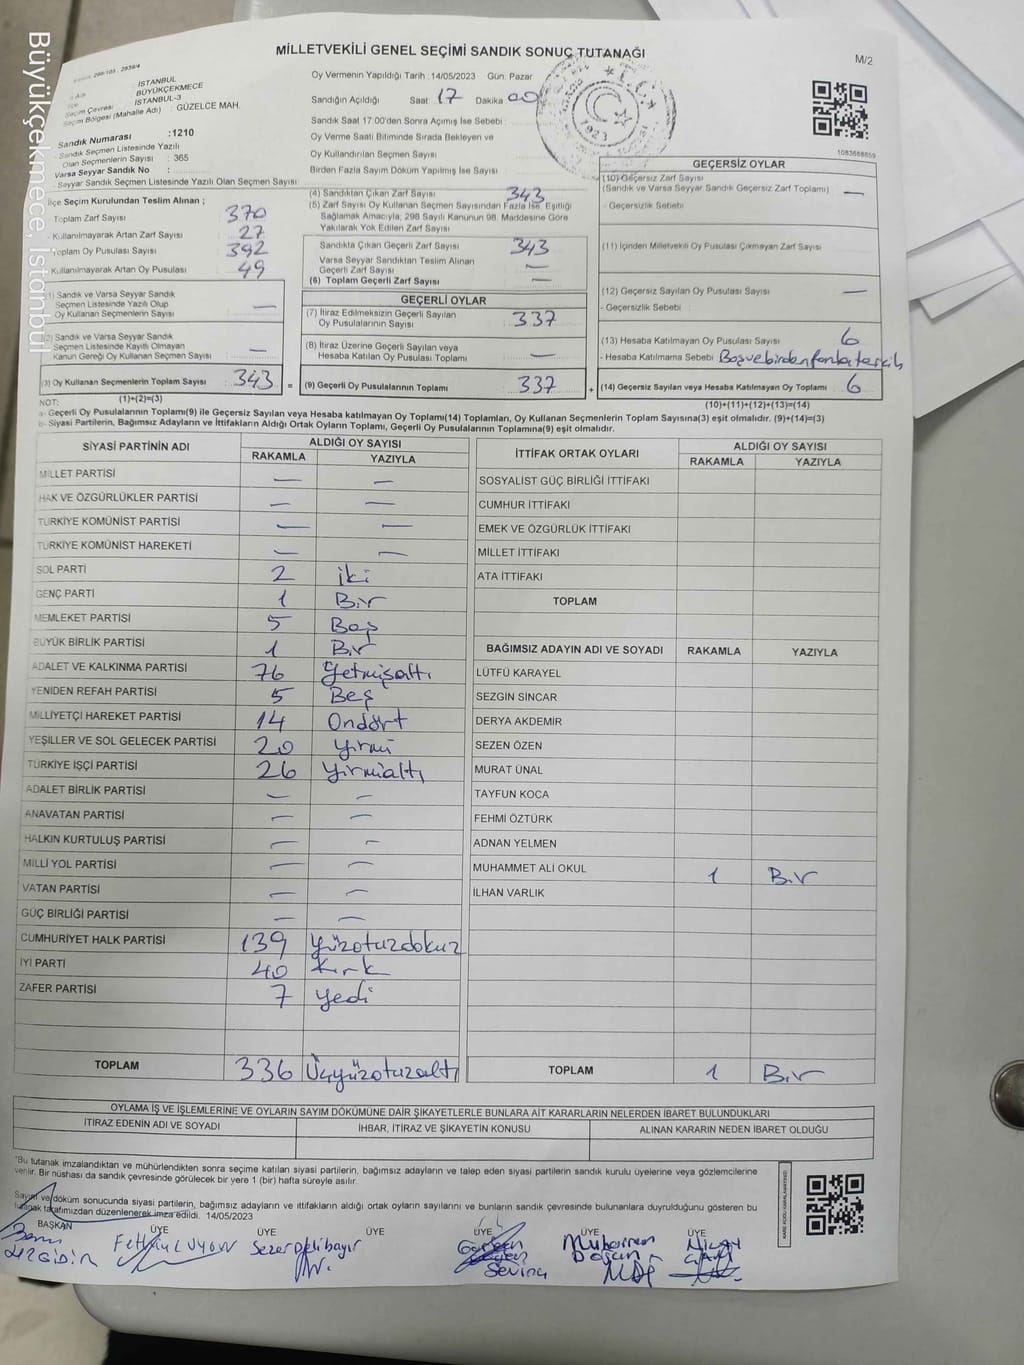 Büyükçekmece, İstanbul
MİLLETVEKİLİ GENEL SEÇİMİ SANDIK SONUÇ TUTANAĞI
M/2
İSTANBUL
BÜYÜKÇEKMECE
Seçim Çevresi : İSTANBUL-3
Seçim Bölgesi (Mahalle Adı) : GÜZELCE MAH.
Sandık Numarası :1210
Sandık Seçmen Listesinde Yazılı
Olan Seçmenlerin Sayısı : 365
Varsa Seyyar Sandık No :
Seyyar Sandık Seçmen Listesinde Yazılı Olan Seçmen Sayısı:
Oy Vermenin Yapıldığı Tarih : 14/05/2023 Gün: Pazar
Sandığın Açıldığı Saat: 17 Dakika 00
Sandık Saat 17.00'den Sonra Açımış İse Sebebi :
Oy Verme Saati Bitiminde Sırada Bekleyen ve
Oy Kullandırılan Seçmen Sayısı
Birden Fazla Sayım Döküm Yapılmış İse Sayısı
1923
1083668659
İlçe Seçim Kurulundan Teslim Alınan ;
- Toplam Zarf Sayısı 370
- Kullanılmayarak Artan Zarf Sayısı 27
Toplam Oy Pusulası Sayısı 392
- Kullanılmayarak Artan Oy Pusulası 49
(1) Sandık ve Varsa Seyyar Sandık
Seçmen Listesinde Yazılı Olup
Oy Kullanan Seçmenlerin Sayısı —
(2) Sandık ve Varsa Seyyar Sandık
Seçmen Listesinde Kayıtlı Olmayan
Kanun Gereği Oy Kullanan Seçmen Sayısı —
(3) Oy Kullanan Seçmenlerin Toplam Sayısı 343 =
(1)+(2)=(3)
(4) Sandıktan Çıkan Zarf Sayısı 343
(5) Zarf Sayısı Oy Kullanan Seçmen Sayısından Fazla İse, Eşitliği
Sağlamak Amacıyla, 298 Sayılı Kanunun 98. Maddesine Göre
Yakılarak Yok Edilen Zarf Sayısı
Sandıkta Çıkan Geçerli Zarf Sayısı 343
Varsa Seyyar Sandıktan Teslim Alınan
Geçerli Zarf Sayısı —
(6) Toplam Geçerli Zarf Sayısı —
GEÇERLİ OYLAR
(7) İtiraz Edilmeksizin Geçerli Sayılan
Oy Pusulalarının Sayısı 337
(8) İtiraz Üzerine Geçerli Sayılan veya
Hesaba Katılan Oy Pusulası Toplamı —
(9) Geçerli Oy Pusulalarının Toplamı 337 +
GEÇERSİZ OYLAR
(10) Geçersiz Zarf Sayısı
(Sandık ve Varsa Seyyar Sandık Geçersiz Zarf Toplamı) —
- Geçersizlik Sebebi
(11) İçinden Milletvekili Oy Pusulası Çıkmayan Zarf Sayısı
(12) Geçersiz Sayılan Oy Pusulası Sayısı —
- Geçersizlik Sebebi
(13) Hesaba Katılmayan Oy Pusulası Sayısı 6
- Hesaba Katılmama Sebebi Boş ve birden fazla tercih
(14) Geçersiz Sayılan veya Hesaba Katılmayan Oy Toplamı 6
(10)+(11)+(12)+(13)=(14)
NOT:
a- Geçerli Oy Pusulalarının Toplamı(9) ile Geçersiz Sayılan veya Hesaba katılmayan Oy Toplamı(14) Toplamları, Oy Kullanan Seçmenlerin Toplam Sayısına(3) eşit olmalıdır. (9)+(14)=(3)
b- Siyasi Partilerin, Bağımsız Adayların ve İttifakların Aldığı Ortak Oyların Toplamı, Geçerli Oy Pusulalarının Toplamına(9) eşit olmalıdır.
SİYASİ PARTİNİN ADI ALDIĞI OY SAYISI
RAKAMLA YAZIYLA
MİLLET PARTİSİ — —
HAK VE ÖZGÜRLÜKLER PARTİSİ — —
TÜRKİYE KOMÜNİST PARTİSİ — —
TÜRKİYE KOMÜNİST HAREKETİ — —
SOL PARTİ 2 iki
GENÇ PARTİ 1 Bir
MEMLEKET PARTİSİ 5 Beş
BÜYÜK BİRLİK PARTİSİ 1 Bir
ADALET VE KALKINMA PARTİSİ 76 Yetmişaltı
YENİDEN REFAH PARTİSİ 5 Beş
MİLLİYETÇİ HAREKET PARTİSİ 14 Ondört
YEŞİLLER VE SOL GELECEK PARTİSİ 20 Yirmi
TÜRKİYE İŞÇİ PARTİSİ 26 Yirmialtı
ADALET BİRLİK PARTİSİ — —
ANAVATAN PARTİSİ — —
HALKIN KURTULUŞ PARTİSİ — —
MİLLİ YOL PARTİSİ — —
VATAN PARTİSİ — —
GÜÇ BİRLİĞİ PARTİSİ — —
CUMHURİYET HALK PARTİSİ 139 Yüzotuzdokuz
İYİ PARTİ 40 Kırk
ZAFER PARTİSİ 7 Yedi
TOPLAM 336 Üçyüzotuzaltı
İTTİFAK ORTAK OYLARI ALDIĞI OY SAYISI
RAKAMLA YAZIYLA
SOSYALİST GÜÇ BİRLİĞİ İTTİFAKI
CUMHUR İTTİFAKI
EMEK VE ÖZGÜRLÜK İTTİFAKI
MİLLET İTTİFAKI
ATA İTTİFAKI
TOPLAM
BAĞIMSIZ ADAYIN ADI VE SOYADI RAKAMLA YAZIYLA
LÜTFÜ KARAYEL
SEZGİN SİNCAR
DERYA AKDEMİR
SEZEN ÖZEN
MURAT ÜNAL
TAYFUN KOCA
FEHMİ ÖZTÜRK
ADNAN YELMEN
MUHAMMET ALİ OKUL 1 Bir
İLHAN VARLIK
TOPLAM 1 Bir
OYLAMA İŞ VE İŞLEMLERİNE VE OYLARIN SAYIM DÖKÜMÜNE DAİR ŞİKAYETLERLE BUNLARA AİT KARARLARIN NELERDEN İBARET BULUNDUKLARI
İTİRAZ EDENİN ADI VE SOYADI İHBAR, İTİRAZ VE ŞİKAYETİN KONUSU ALINAN KARARIN NEDEN İBARET OLDUĞU
"Bu tutanak imzalandıktan ve mühürlendikten sonra seçime katılan siyasi partilerin, bağımsız adayların ve talep eden siyasi partilerin sandık kurulu üyelerine veya gözlemcilerine
verilir. Bir nüshası da sandık çevresinde görülecek bir yere 1 (bir) hafta süreyle asılır.
Sayım ve döküm sonucunda siyasi partilerin, bağımsız adayların ve ittifakların aldığı ortak oyların sayılarını ve bunların sandık çevresinde bulunanlara duyrulduğunu gösteren bu
tutanak tarafımızdan düzenlenerek imza edildi. 14/05/2023
BAŞKAN ÜYE ÜYE ÜYE ÜYE ÜYE ÜYE
Sezer Delibayır
Sevinç
Muharrem
Doğan